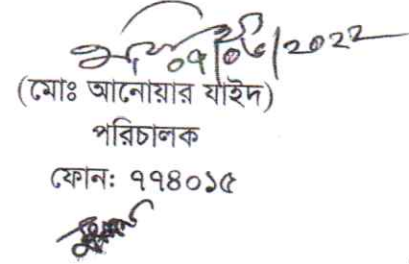 ০৭/০৬/২০২২
(মোঃ আনোয়ার যাইদ)
পরিচালক
ফোনঃ ৭৭৪০১৫